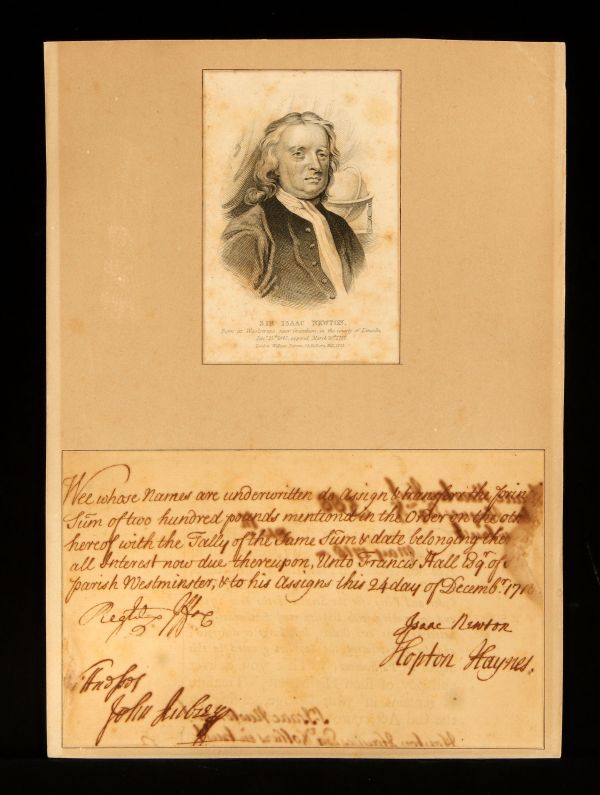 SIR ISAAC NEWTON.
Born at Woolstrope near Grantham, in the county of Lincoln,
Decr. 25th 1642, expired March 20th
London, William Darton, Holborn Hill,
Wee whose Names are underwritten do Assign & transferr the
Sum of two hundred pounds mentioned in the Order on the oth
hereof with the Tally of the Same Sum & date belonging the
all Interest now due thereupon, Unto Francis Hall Esqr. of
parish Westminster, & to his Assigns this 24 day of Decembr.
Isaac Newton
Hopton Haynes.
John